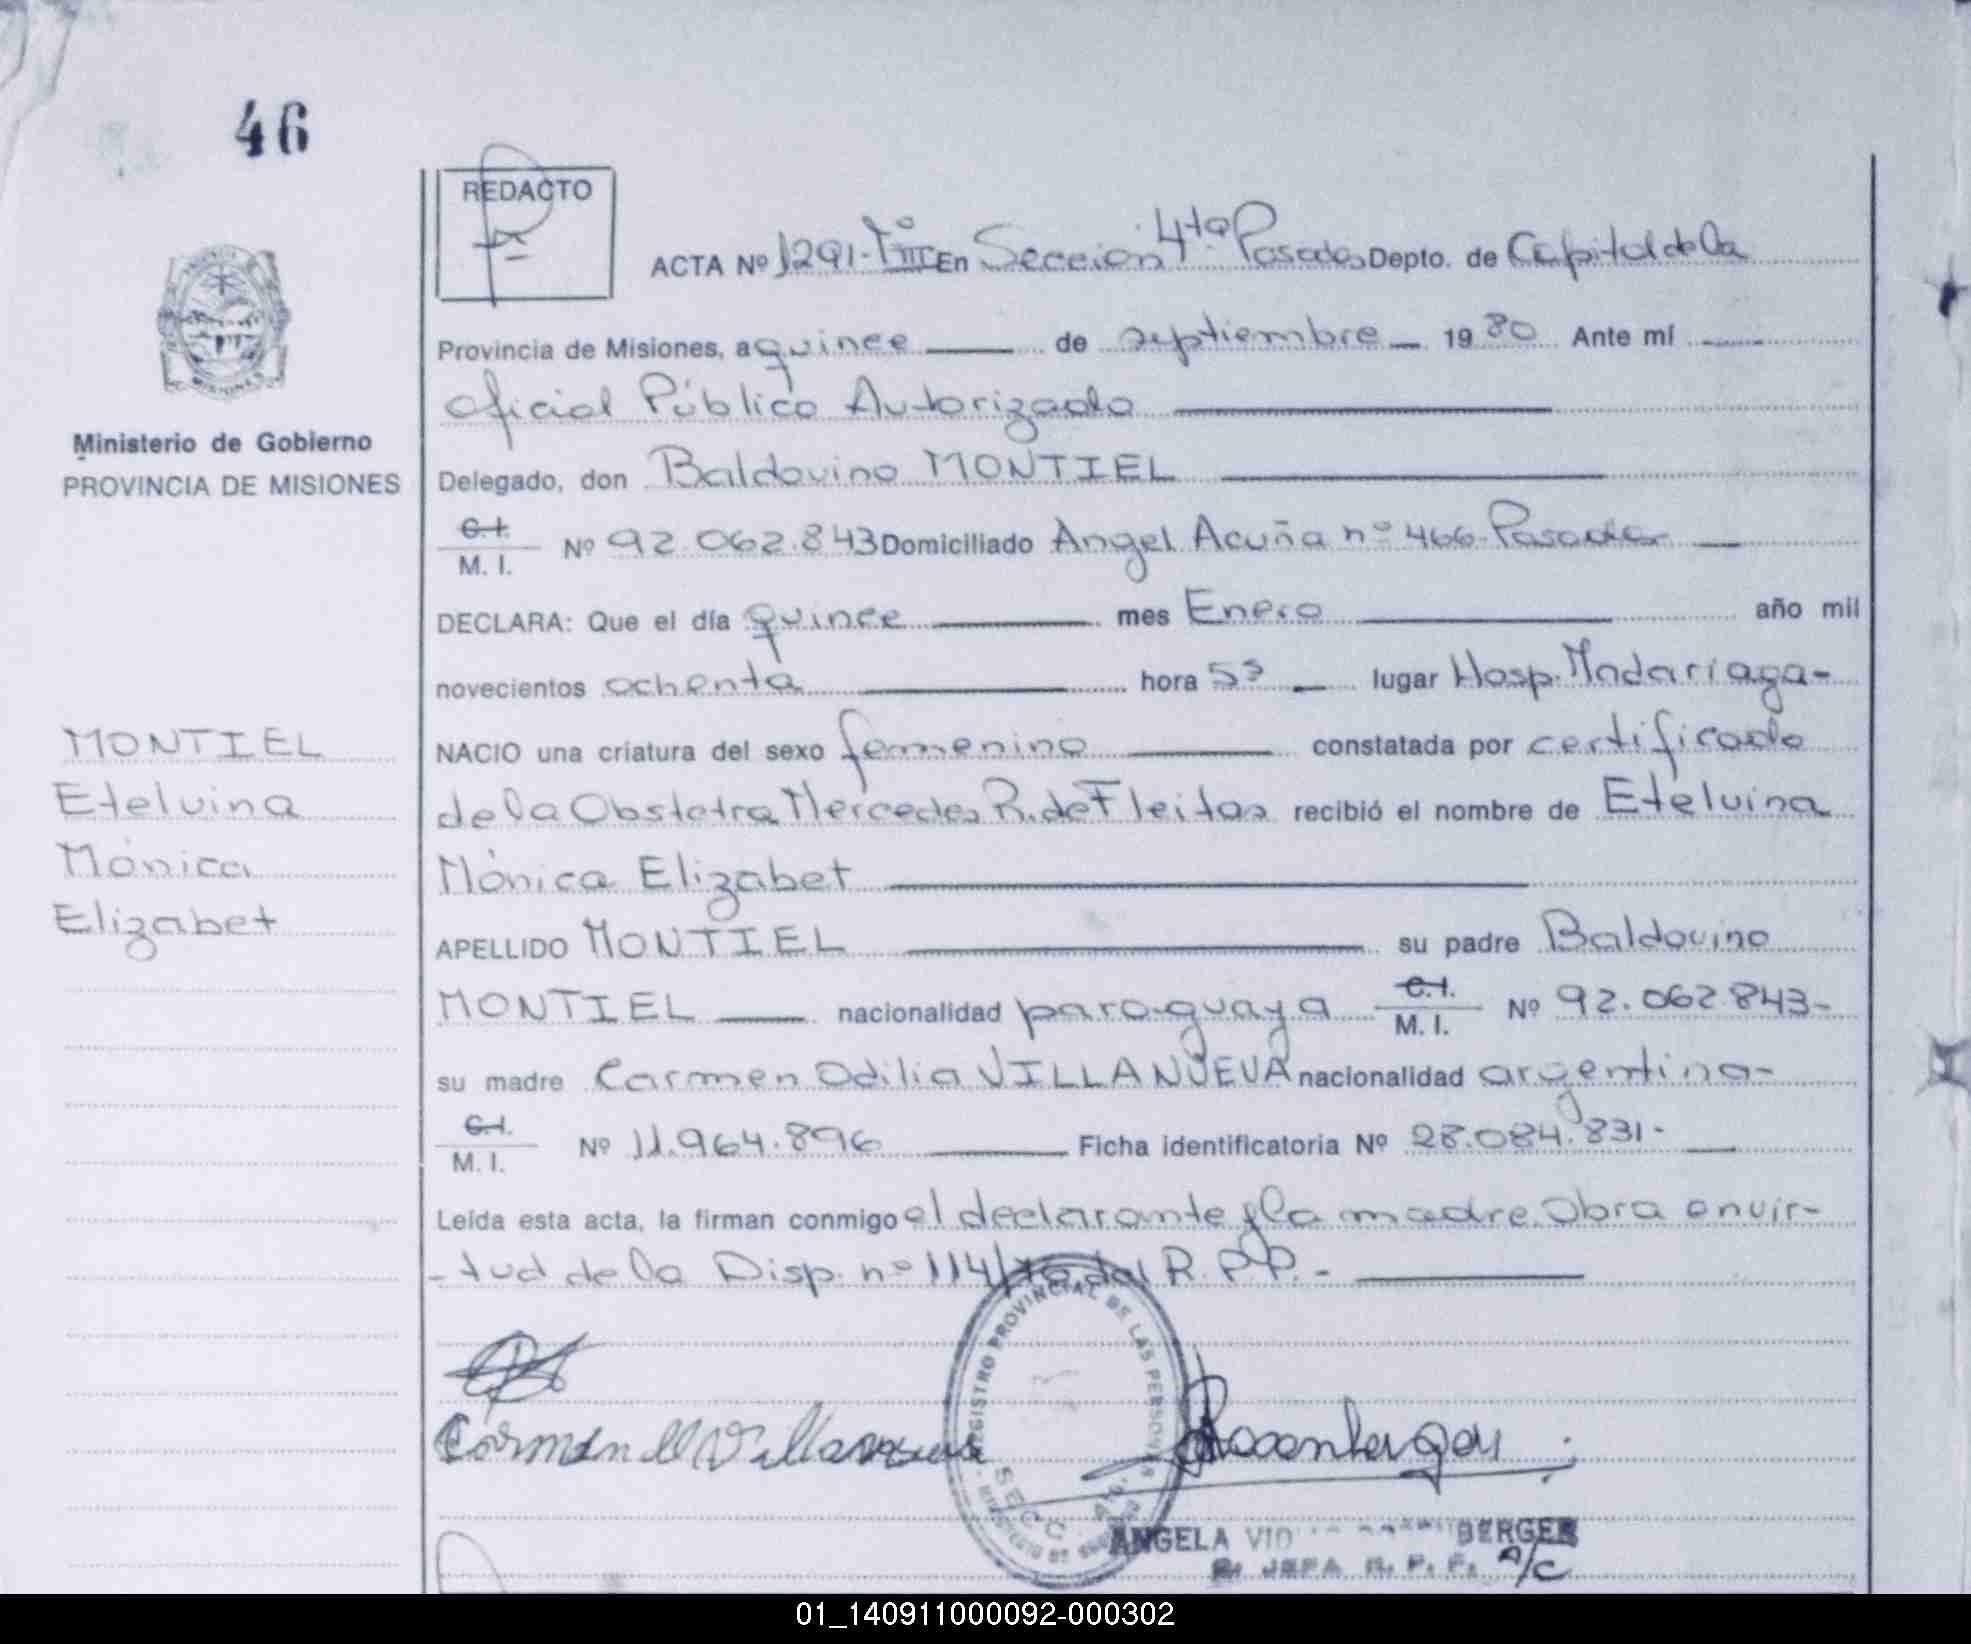 46
REDACTO
ACTA Nº 1291-Tº III En Sección 4ta Posadas Depto. de Capital de la
Provincia de Misiones, a quince de septiembre 1980 Ante mí
Oficial Público Autorizado
Ministerio de Gobierno
PROVINCIA DE MISIONES
Delegado, don Baldovino MONTIEL
C.I.
M. I. Nº 92.062.843 Domiciliado Angel Acuña nº 466-Posadas
DECLARA: Que el día quince mes Enero año mil
novecientos ochenta hora 5 lugar Hosp. Madariaga-
MONTIEL
Etelvina
Mónica
Elizabet
NACIO una criatura del sexo femenino constatada por certificado
de la Obstetra Mercedes R. de Fleitas recibió el nombre de Etelvina
Mónica Elizabet
APELLIDO MONTIEL su padre Baldovino
MONTIEL nacionalidad paraguaya C.I. M. I. Nº 92.062.843-
su madre Carmen Odilia VILLANUEVA nacionalidad argentina-
C.I.
M. I. Nº 11.964.896 Ficha identificatoria Nº 28.084.831-
Leída esta acta, la firman conmigo el declarante y la madre. Obra en vir-
-tud de la Disp. nº 114/78 del R.P.P.-
REGISTRO PROVINCIAL DE LAS PERSONAS
SECC. 4
Carmen Villanueva
ANGELA BERGER
JEFA R. P. P. a/c
01_140911000092-000302